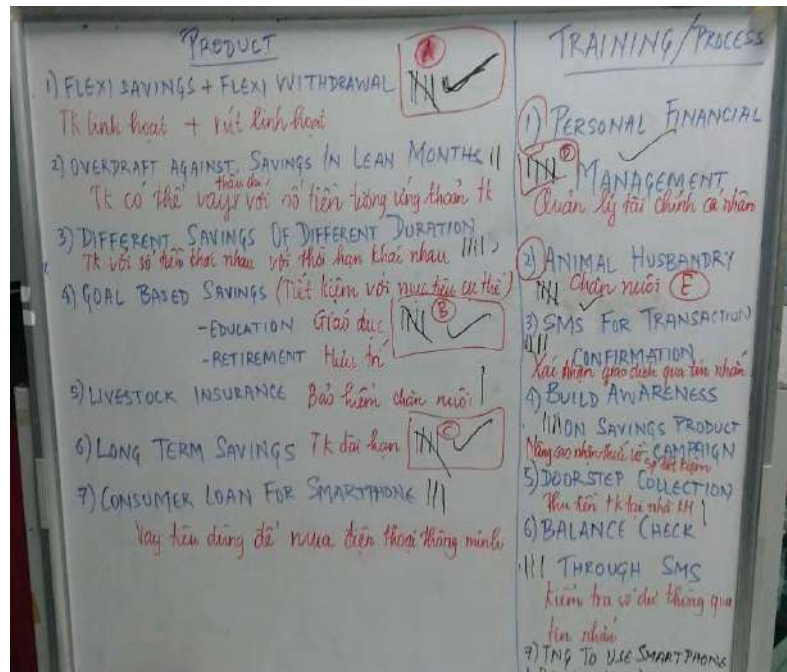 PRODUCT
A
1) FLEXI SAVINGS + FLEXI WITHDRAWAL
TK linh hoạt + rút linh hoạt
2) OVERDRAFT AGAINST SAVINGS IN LEAN MONTHS
thấu chi
TK có thể vay với số tiền tương ứng khoản tk
3) DIFFERENT SAVINGS OF DIFFERENT DURATION
TK với số tiền khác nhau với thời hạn khác nhau
4) GOAL BASED SAVINGS (Tiết kiệm với mục tiêu cụ thể)
-EDUCATION Giáo dục B
-RETIREMENT Hưu trí
5) LIVESTOCK INSURANCE Bảo hiểm chăn nuôi
6) LONG TERM SAVINGS TK dài hạn C
7) CONSUMER LOAN FOR SMARTPHONE
Vay tiêu dùng để mua điện thoại thông minh
TRAINING/PROCESS
1) PERSONAL FINANCIAL
D
MANAGEMENT
Quản lý tài chính cá nhân
2) ANIMAL HUSBANDRY
Chăn nuôi E
3) SMS FOR TRANSACTION
CONFIRMATION
Xác nhận giao dịch qua tin nhắn
4) BUILD AWARENESS
ON SAVINGS PRODUCT
Nâng cao nhận thức về CAMPAIGN
sp tiết kiệm
5) DOORSTEP COLLECTION
Thu tiền tk tại nhà KH
6) BALANCE CHECK
THROUGH SMS
kiểm tra số dư thông qua
tin nhắn
7) TNG TO USE SMARTPHONE